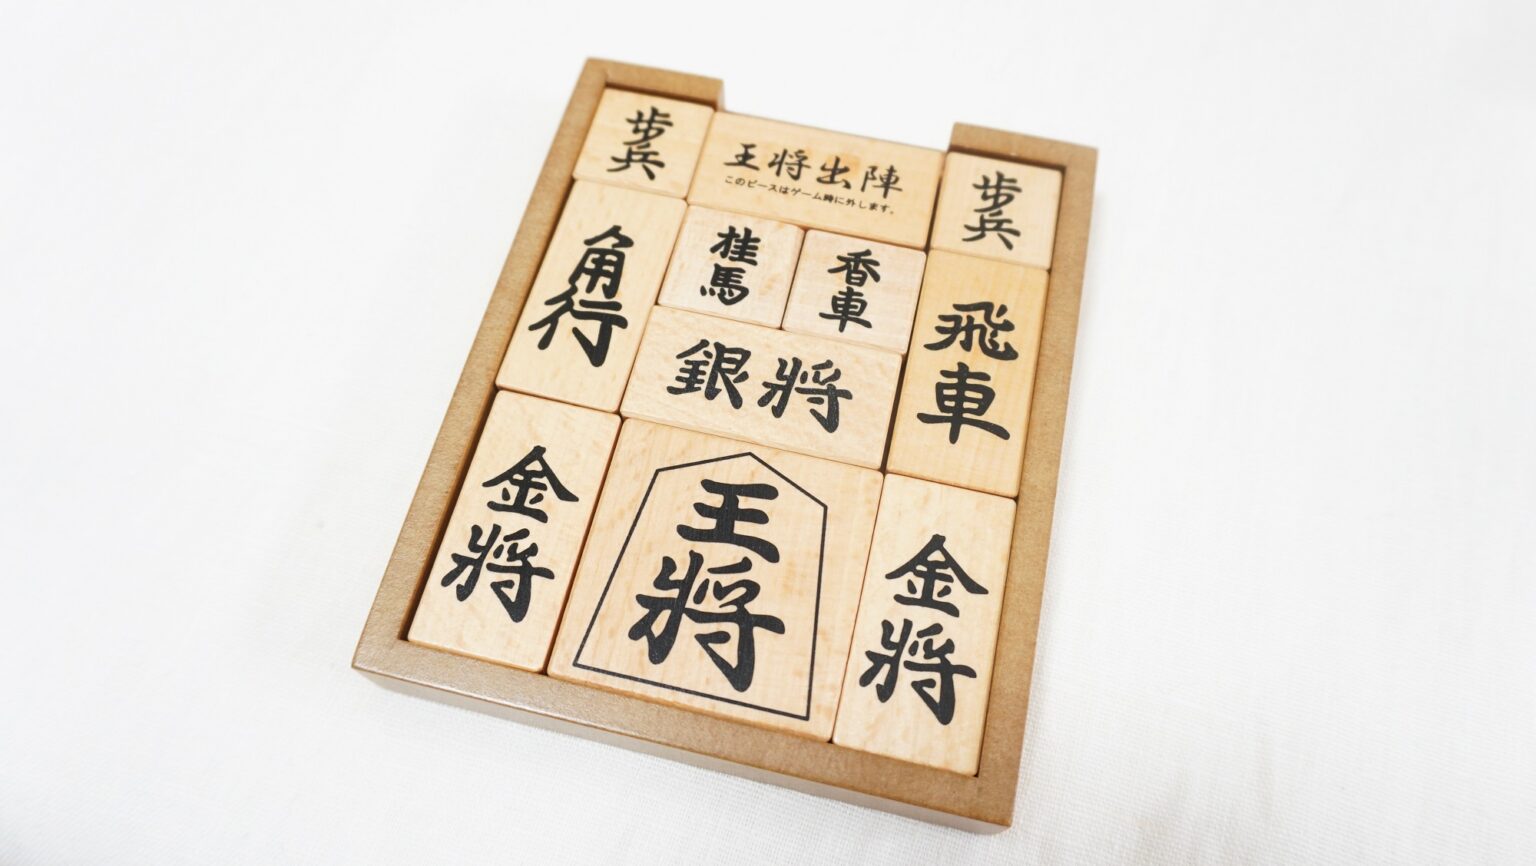 歩兵
王将出陣
このピースはゲーム時に外します。
歩兵
角行
桂馬
香車
飛車
銀将
金将
王将
金将